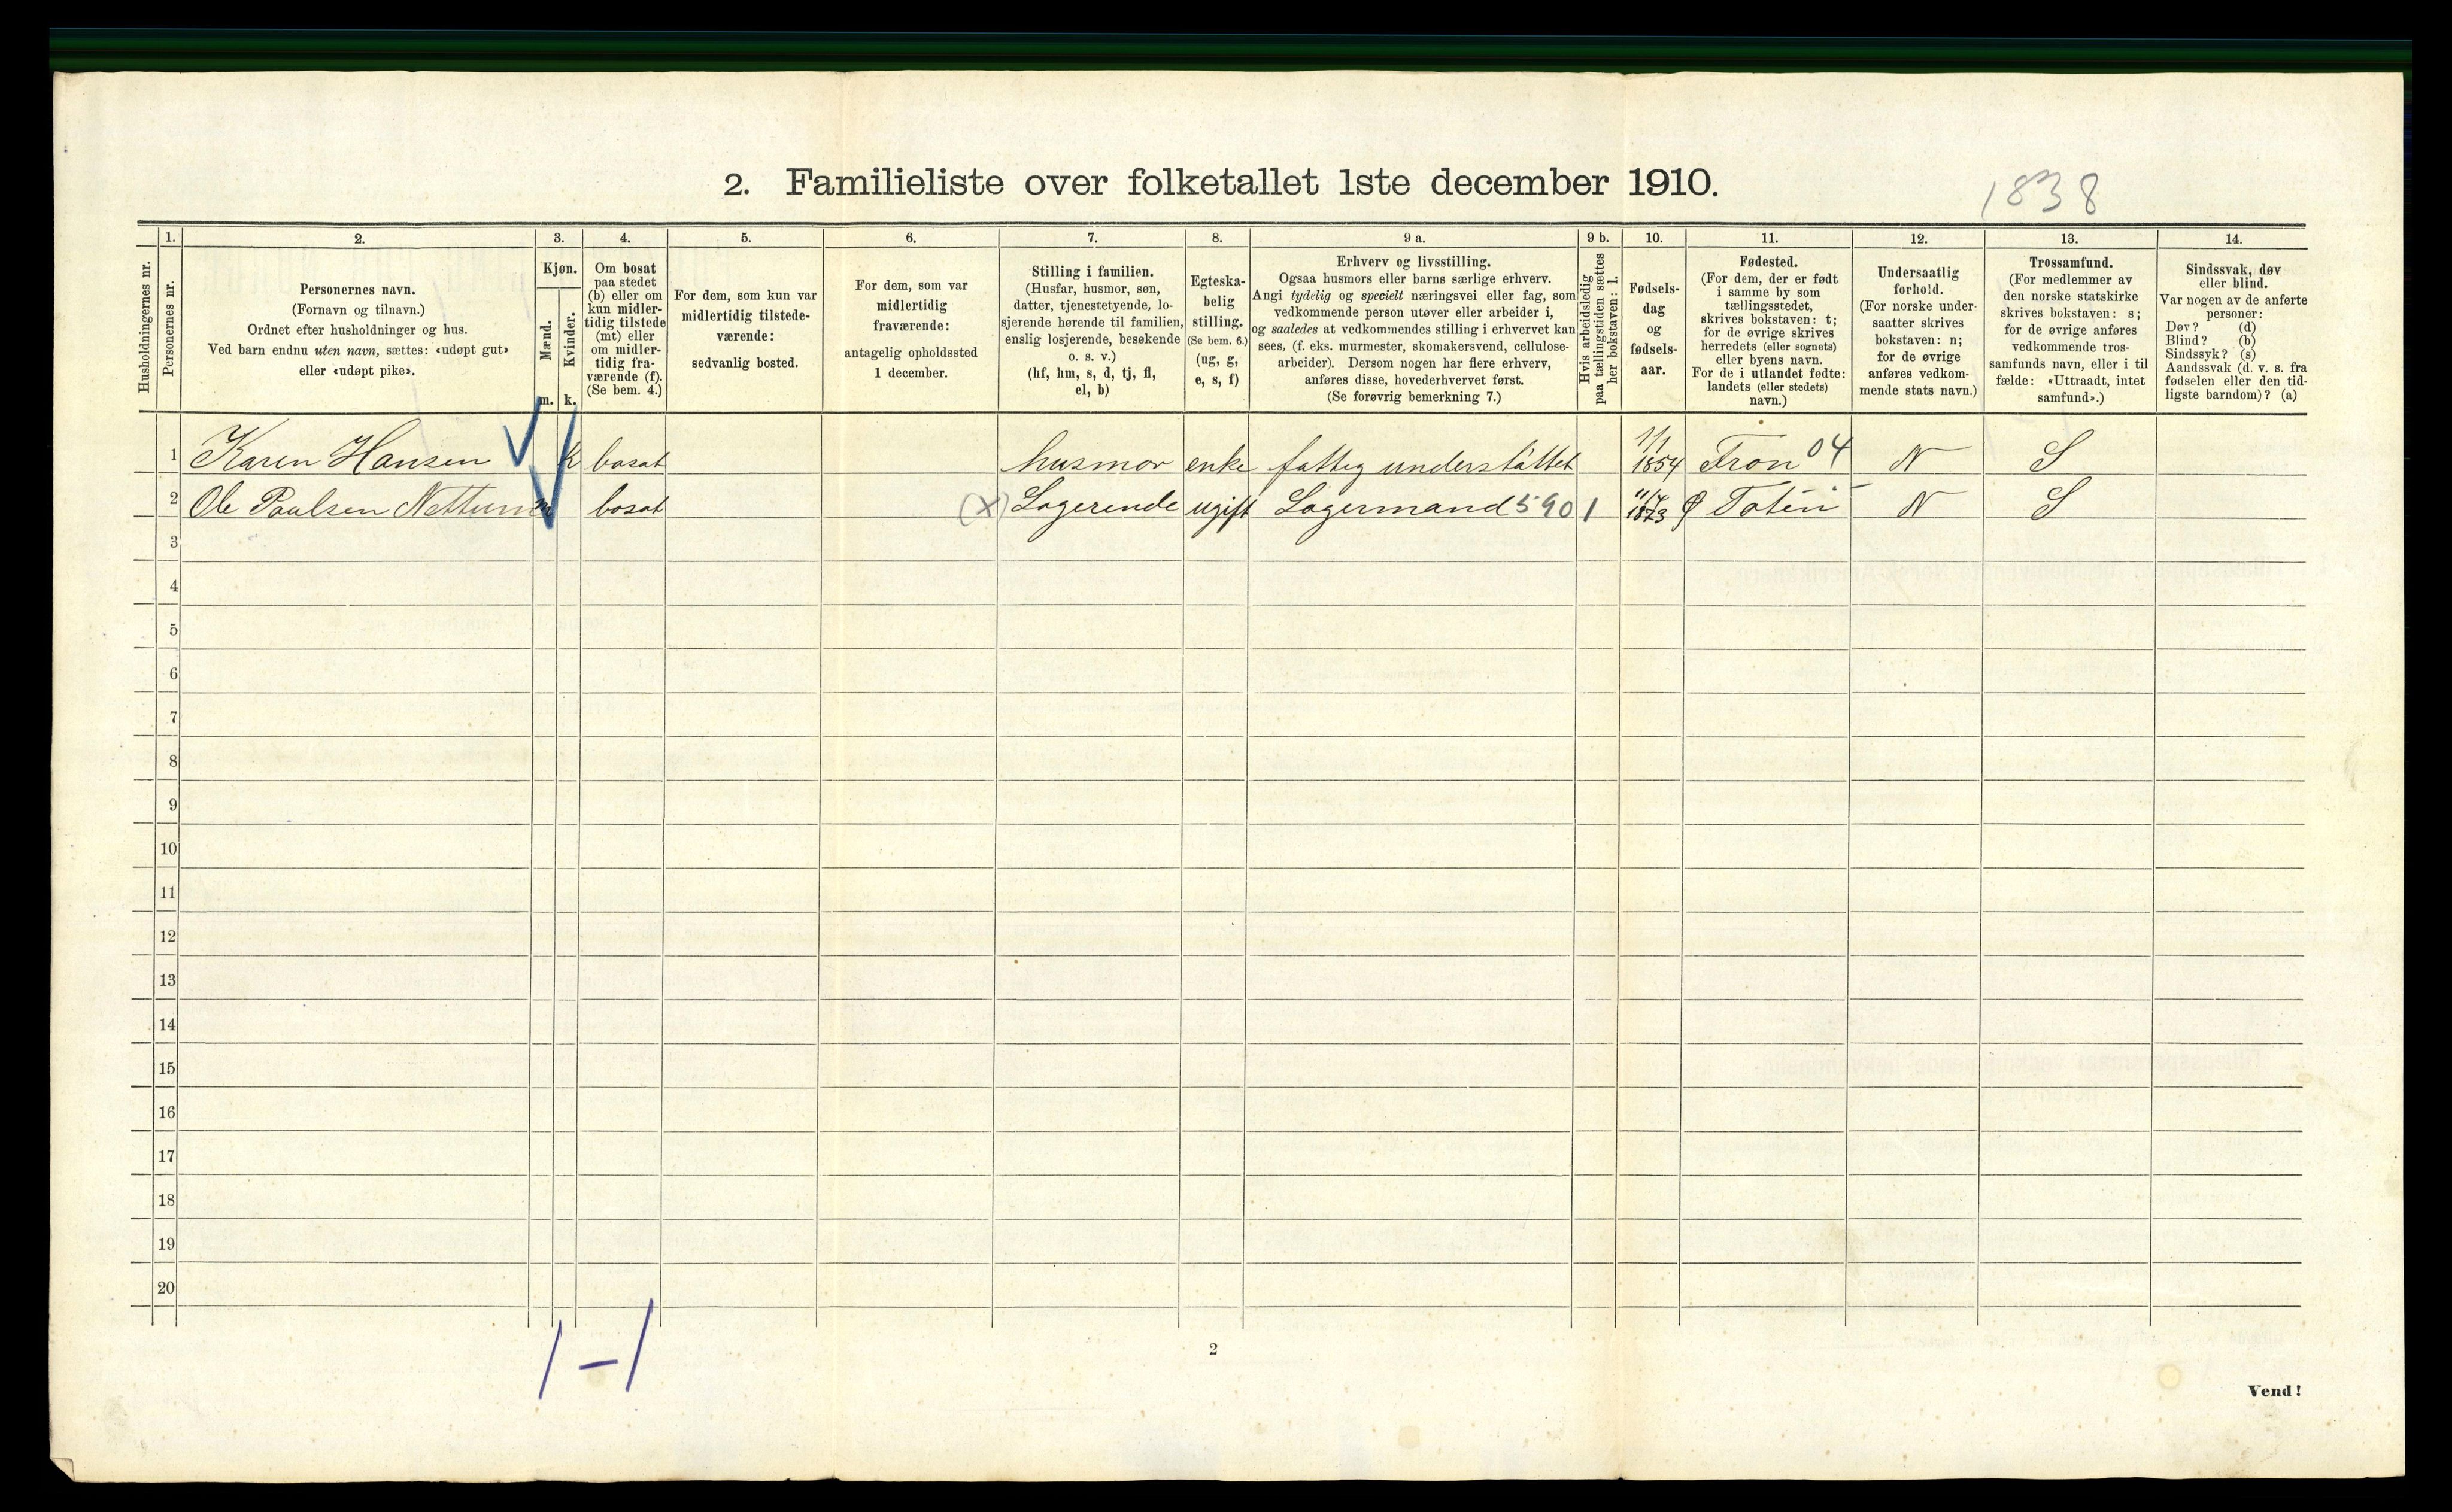 2. Familieliste over folketallet 1ste december 1910.
1838
Husholdningernes nr.
1.
Personernes nr.
2.
Personernes navn.
(Fornavn og tilnavn.)
Ordnet efter husholdninger og hus.
Ved barn endnu uten navn, sættes: «udøpt gut»
eller «udøpt pike».
3.
Kjøn.
Mænd.
Kvinder.
m. k.
4.
Om bosat
paa stedet
(b) eller om
kun midler-
tidig tilstede
(mt) eller
om midler-
tidig fra-
værende (f).
(Se bem. 4.)
5.
For dem, som kun var
midlertidig tilstede-
værende:
sedvanlig bosted.
6.
For dem, som var
midlertidig
fraværende:
antagelig opholdssted
1 december.
7.
Stilling i familien.
(Husfar, husmor, søn,
datter, tjenestetyende, lo-
sjerende hørende til familien,
enslig losjerende, besøkende
o. s. v.)
(hf, hm, s, d, tj, fl,
el, b)
8.
Egteska-
belig
stilling.
(Se bem. 6.)
(ug, g,
e, s, f)
9 a.
Erhverv og livsstilling.
Ogsaa husmors eller barns særlige erhverv.
Angi tydelig og specielt næringsvei eller fag, som
vedkommende person utøver eller arbeider i,
og saaledes at vedkommendes stilling i erhvervet kan
sees, (f. eks. murmester, skomakersvend, cellulose-
arbeider). Dersom nogen har flere erhverv,
anføres disse, hovederhvervet først.
(Se forøvrig bemerkning 7.)
9 b.
Hvis arbeidsledig
paa tællingstiden sættes
her bokstaven: l.
10.
Fødsels-
dag
og
fødsels-
aar.
11.
Fødested.
(For dem, der er født
i samme by som
tællingsstedet,
skrives bokstaven: t;
for de øvrige skrives
herredets (eller sognets)
eller byens navn.
For de i utlandet fødte:
landets (eller stedets)
navn.)
12.
Undersaatlig
forhold.
(For norske under-
saatter skrives
bokstaven: n;
for de øvrige
anføres vedkom-
mende stats navn.)
13.
Trossamfund.
(For medlemmer av
den norske statskirke
skrives bokstaven: s;
for de øvrige anføres
vedkommende tros-
samfunds navn, eller i til
fælde: «Uttraadt, intet
samfund».)
14.
Sindssvak, døv
eller blind.
Var nogen av de anførte
personer:
Døv? (d)
Blind? (b)
Sindssyk? (s)
Aandssvak (d. v. s. fra
fødselen eller den tid-
ligste barndom)? (a)
1 Karen Hansen k bosat husmor enke fattig understøttet 1/1 1854 Fron 04 N S
2 Ole Paulsen Nettum m bosat (X) Logerende ugift Lagermand 590 1 11/4 1873 Ø Toten N S
3
4
5
6
7
8
9
10
11
12
13
14
15
16
17
18
19
20
1 - 1
2
Vend!